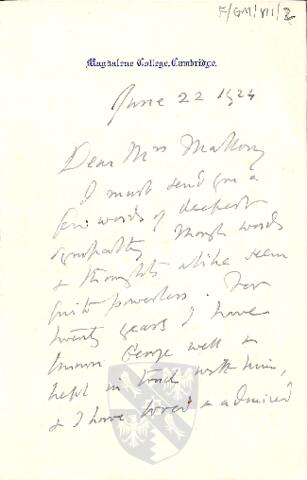 F/GM/VII/2
Magdalene College, Cambridge.
June 22 1924
Dear Mrs Mallory
I must send you a
few words of deepest
sympathy though words
& thoughts alike seem
quite powerless. For
twenty years I have
known George well &
kept in touch with him,
& I have loved & admired